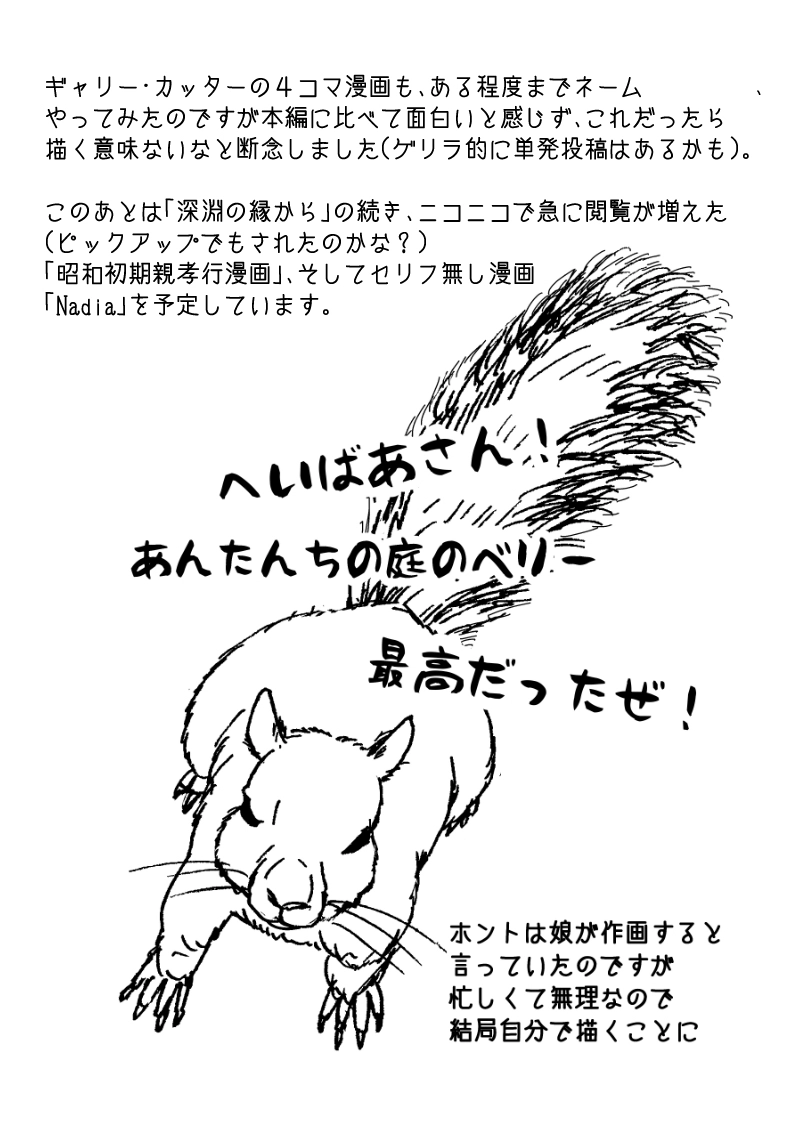 ギャリー・カッターの4コマ漫画も、ある程度までネーム　　　　　、
やってみたのですが本編に比べて面白いと感じず、これだったら
描く意味ないなと断念しました(ゲリラ的に単発投稿はあるかも)。
このあとは「深淵の縁から」の続き、ニコニコで急に閲覧が増えた
(ピックアップでもされたのかな？)
「昭和初期親孝行漫画」、そしてセリフ無し漫画
「Nadia」を予定しています。
へいばあさん！
あんたんちの庭のベリー
最高だったぜ！
ホントは娘が作画すると
言っていたのですが
忙しくて無理なので
結局自分で描くことに